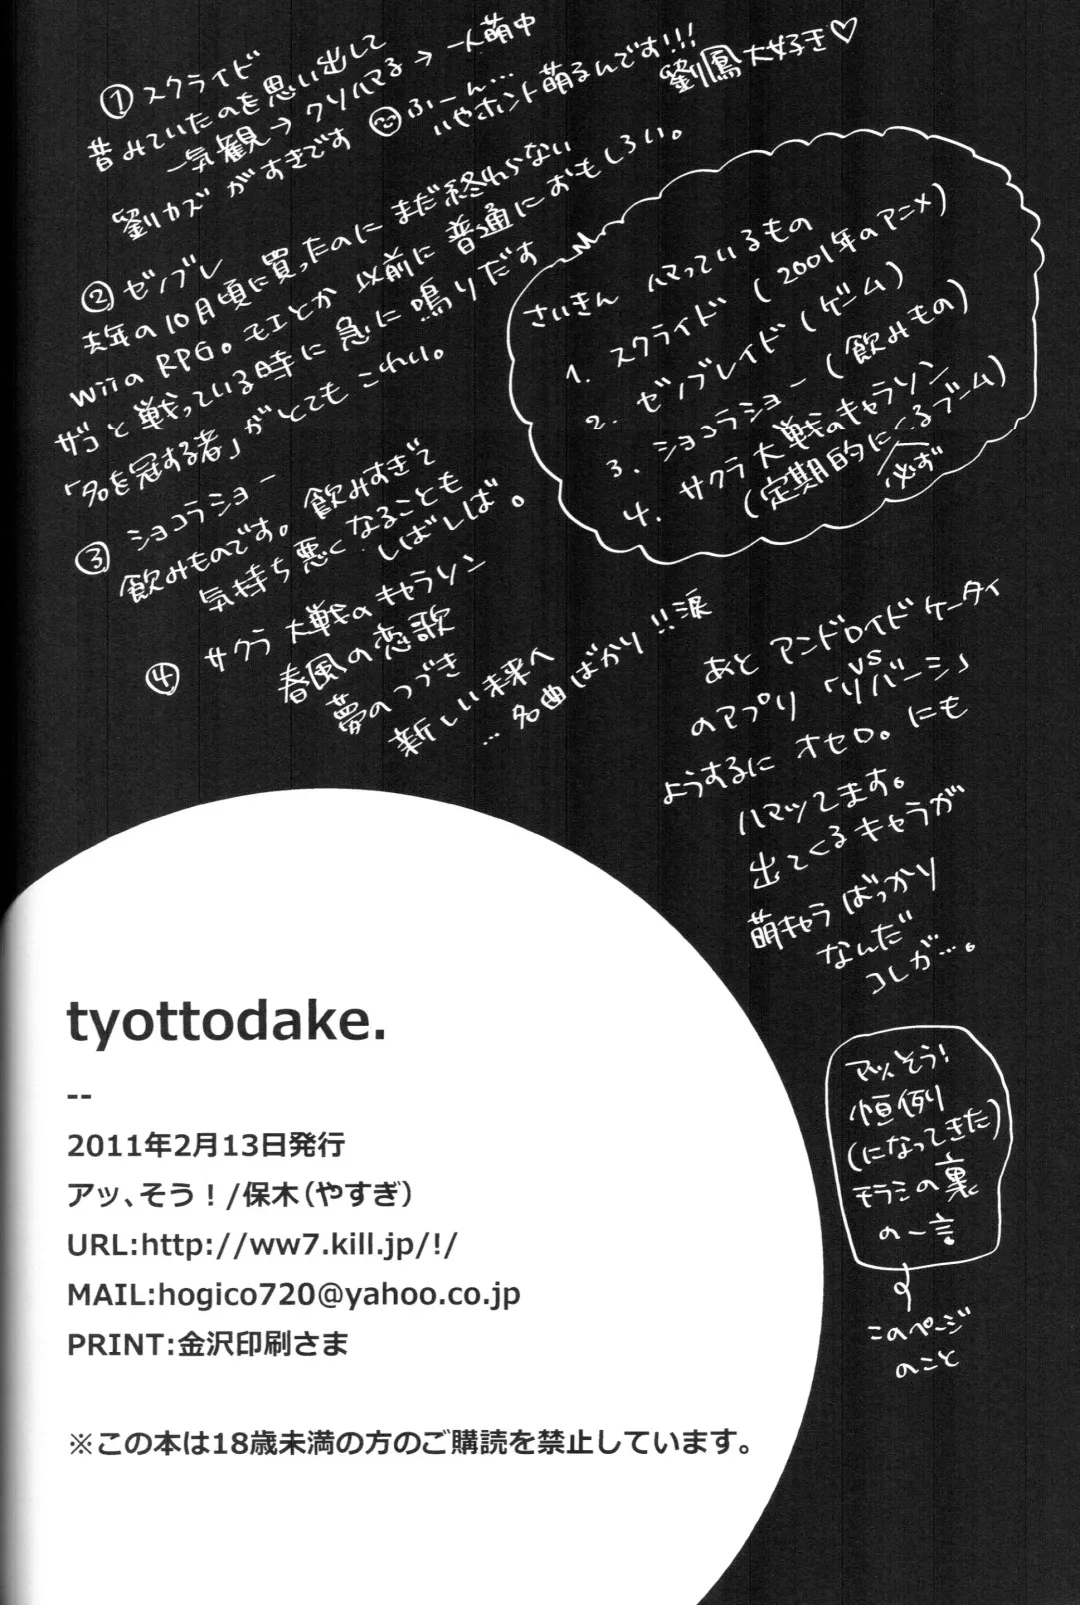 さいきん ハマっているもの
1. スクライド (2001年のアニメ)
2. ゼノブレイド (ゲーム)
3. ショコラショー (飲みもの)
4. サクラ大戦のキャラソン
(定期的にくるブーム)
必ず
①スクライド
昔みていたのを思い出して
一気観→クソハマる→一人萌中
劉カズがすきです ふーん…
いやホント萌るんです!!!
劉鳳大好き♡
②ゼノブレ
去年の10月頃に買ったのにまだ終わらない
WiiのRPG。モエとか以前に普通におもしろい。
ザコと戦っている時に急に鳴りだす
「名を冠する者」がとてもこれい。
③ショコラショー
飲みものです。飲みすぎて
気持ち悪くなることも
しばしば。
④サクラ大戦のキャラソン
春風の恋歌
夢のつづき
新しい未来へ
…名曲ばかり!!涙
あとアンドロイドケータイ
のアプリ「vsリバーシ」
ようするにオセロ。にも
ハマッてます。
出てくるキャラが
萌キャラばっかり
なんだ
コレが…。
アッそう!
恒例
(になってきた)
モラシの裏
の一言
このページ
のこと
tyottodake.
--
2011年2月13日発行
アッ、そう!/保木(やすぎ)
URL:http://ww7.kill.jp/!/
MAIL:hogico720@yahoo.co.jp
PRINT:金沢印刷さま
※この本は18歳未満の方のご購読を禁止しています。